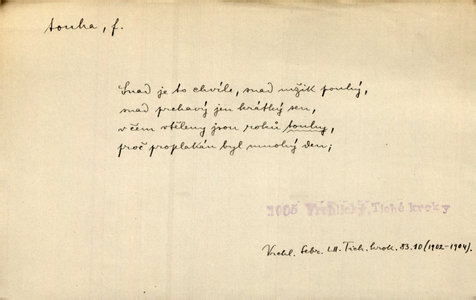 touha, f.
Snad je to chvíle, snad mžik pouhý,
snad prchavý jen krátký sen,
v čem vtěleny jsou roků touhy,
proč proplakán byl mnohý den;
1905 Vrchlický, Tiché kroky
Vrchl. Sebr. LII. Tich. krok. 83.10 (1902–1904).